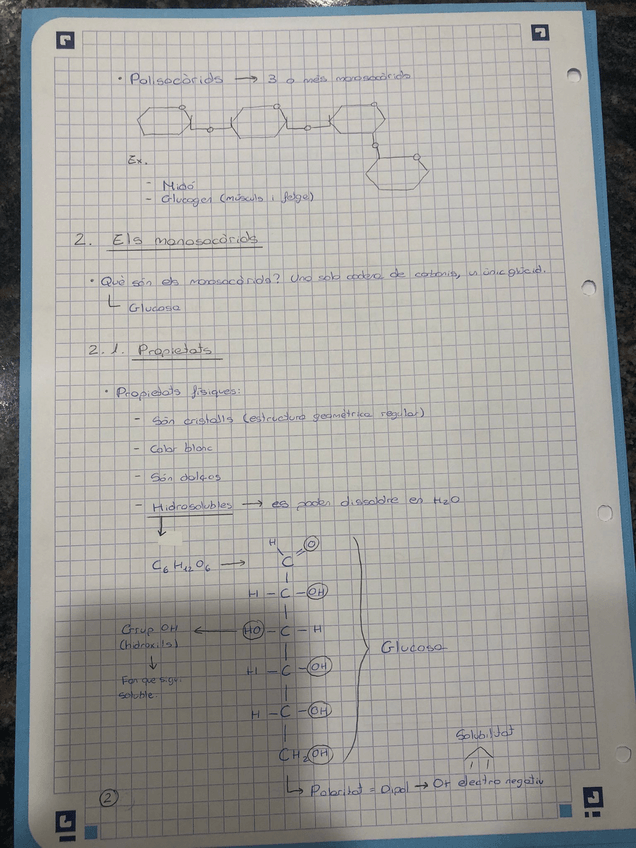 · Polisacàrids → 3 o més monosacàrids
Ex.
- Midó
- Glucogen (músculs i fetge)
2. Els monosacàrids
· Què són els monosacàrids? Una sola cadena de carbonis, un únic glúcid.
Glucosa
2.1. Propietats
· Propietats físiques:
- Són cristalls (estructura geomètrica regular)
- Color blanc
- Són dolços
- Hidrosolubles → es poden dissoldre en H₂O
C₆H₁₂O₆ →
H O
C
H - C - OH
Grup OH ← HO - C - H
(hidroxils)
Glucosa
H - C - OH
Fan que sigui
soluble
H - C - OH
Solubilitat
CH₂OH
Polaritat = Dipol → electronegatiu
2